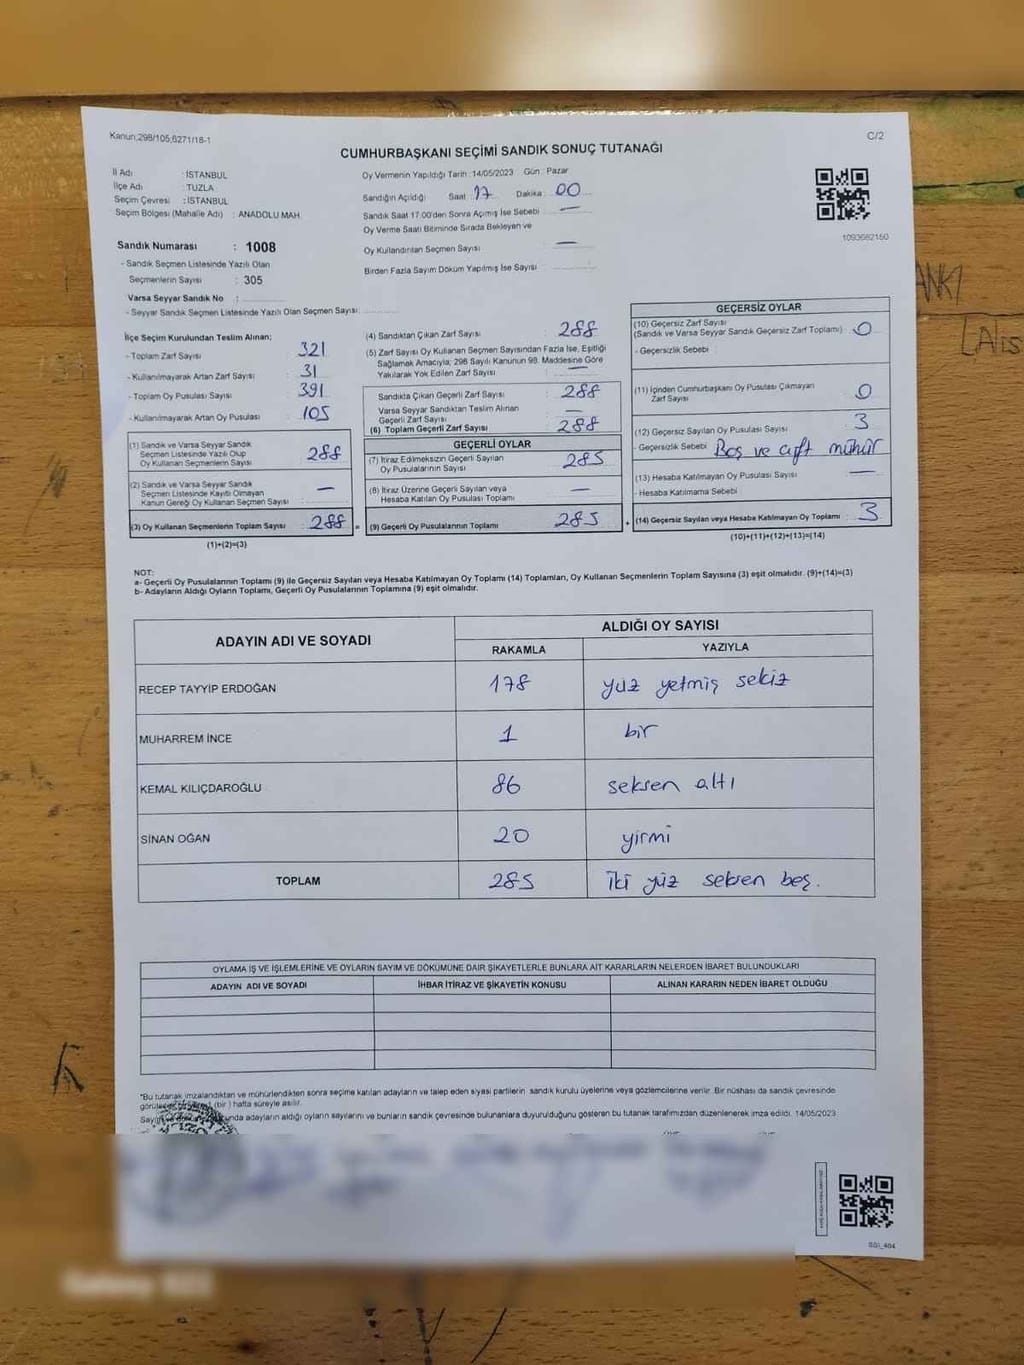 Kanun:298/105,6271/18-1
C/2
CUMHURBAŞKANI SEÇİMİ SANDIK SONUÇ TUTANAĞI
İl Adı : İSTANBUL
İlçe Adı : TUZLA
Seçim Çevresi : İSTANBUL
Seçim Bölgesi (Mahalle Adı) : ANADOLU MAH.
Oy Vermenin Yapıldığı Tarih : 14/05/2023 Gün : Pazar
Sandığın Açıldığı Saat 17 Dakika : 00
Sandık Saat 17.00'den Sonra Açımış İse Sebebi : —
Oy Verme Saati Bitiminde Sırada Bekleyen ve
Oy Kullandırılan Seçmen Sayısı —
Birden Fazla Sayım Döküm Yapılmış İse Sayısı
1093682150
Sandık Numarası : 1008
- Sandık Seçmen Listesinde Yazılı Olan
Seçmenlerin Sayısı : 305
Varsa Seyyar Sandık No :
- Seyyar Sandık Seçmen Listesinde Yazılı Olan Seçmen Sayısı:
İlçe Seçim Kurulundan Teslim Alınan:
- Toplam Zarf Sayısı 321
- Kullanılmayarak Artan Zarf Sayısı : 31
- Toplam Oy Pusulası Sayısı : 391
- Kullanılmayarak Artan Oy Pusulası : 105
(1) Sandık ve Varsa Seyyar Sandık
Seçmen Listesinde Yazılı Olup
Oy Kullanan Seçmenlerin Sayısı : 288
(2) Sandık ve Varsa Seyyar Sandık
Seçmen Listesinde Kayıtlı Olmayan
Kanun Gereği Oy Kullanan Seçmen Sayısı : —
(3) Oy Kullanan Seçmenlerin Toplam Sayısı : 288 =
(1)+(2)=(3)
(4) Sandıktan Çıkan Zarf Sayısı : 288
(5) Zarf Sayısı Oy Kullanan Seçmen Sayısından Fazla İse, Eşitliği
Sağlamak Amacıyla; 298 Sayılı Kanunun 98. Maddesine Göre
Yakılarak Yok Edilen Zarf Sayısı : —
Sandıkta Çıkan Geçerli Zarf Sayısı : 288
Varsa Seyyar Sandıktan Teslim Alınan
Geçerli Zarf Sayısı : —
(6) Toplam Geçerli Zarf Sayısı : 288
GEÇERLİ OYLAR
(7) İtiraz Edilmeksizin Geçerli Sayılan
Oy Pusulalarının Sayısı : 285
(8) İtiraz Üzerine Geçerli Sayılan veya
Hesaba Katılan Oy Pusulası Toplamı : —
(9) Geçerli Oy Pusulalarının Toplamı : 285 +
GEÇERSİZ OYLAR
(10) Geçersiz Zarf Sayısı
(Sandık ve Varsa Seyyar Sandık Geçersiz Zarf Toplamı) : 0
- Geçersizlik Sebebi :
(11) İçinden Cumhurbaşkanı Oy Pusulası Çıkmayan
Zarf Sayısı : 0
(12) Geçersiz Sayılan Oy Pusulası Sayısı : 3
- Geçersizlik Sebebi : Boş ve çift mühür
(13) Hesaba Katılmayan Oy Pusulası Sayısı : —
- Hesaba Katılmama Sebebi :
(14) Geçersiz Sayılan veya Hesaba Katılmayan Oy Toplamı : 3
(10)+(11)+(12)+(13)=(14)
NOT:
a- Geçerli Oy Pusulalarının Toplamı (9) ile Geçersiz Sayılan veya Hesaba Katılmayan Oy Toplamı (14) Toplamları, Oy Kullanan Seçmenlerin Toplam Sayısına (3) eşit olmalıdır. (9)+(14)=(3)
b- Adayların Aldığı Oyların Toplamı, Geçerli Oy Pusulalarının Toplamına (9) eşit olmalıdır.
ADAYIN ADI VE SOYADI
ALDIĞI OY SAYISI
RAKAMLA YAZIYLA
RECEP TAYYİP ERDOĞAN 178 yüz yetmiş sekiz
MUHARREM İNCE 1 bir
KEMAL KILIÇDAROĞLU 86 seksen altı
SİNAN OĞAN 20 yirmi
TOPLAM 285 iki yüz seksen beş.
OYLAMA İŞ VE İŞLEMLERİNE VE OYLARIN SAYIM VE DÖKÜMÜNE DAİR ŞİKAYETLERLE BUNLARA AİT KARARLARIN NELERDEN İBARET BULUNDUKLARI
ADAYIN ADI VE SOYADI İHBAR İTİRAZ VE ŞİKAYETİN KONUSU ALINAN KARARIN NEDEN İBARET OLDUĞU
*Bu tutanak imzalandıktan ve mühürlendikten sonra seçime katılan adayların ve talep eden siyasi partilerin sandık kurulu üyelerine veya gözlemcilerine verilir. Bir nüshası da sandık çevresinde
(bir) hafta süreyle asılır.
adayların aldığı oyların sayılarını ve bunların sandık çevresinde bulunanlara duyurulduğunu gösteren bu tutanak tarafımızdan düzenlenerek imza edildi. 14/05/2023